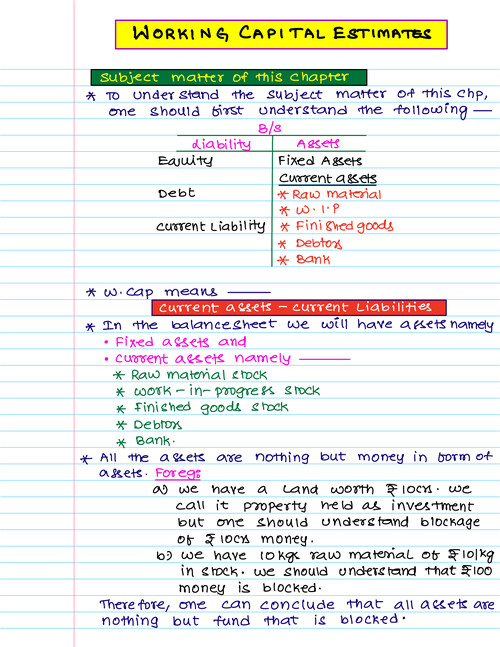 WORKING CAPITAL ESTIMATES
Subject matter of this Chapter
* To understand the subject matter of this chp,
one should first understand the following —
B/s
Liability Assets
Equity Fixed Assets
Current assets
Debt * Raw material
* W.I.P
Current Liability * Finished goods
* Debtors
* Bank
* W.Cap means ———
Current assets – Current Liabilities
* In the balancesheet we will have assets namely
• Fixed assets and
• Current assets namely ———
* Raw material stock
* Work-in-progress stock
* Finished goods stock
* Debtors
* Bank.
* All the assets are nothing but money in form of
assets. Foreg:
a) we have a Land worth ₹10crs. we
call it property held as investment
but one should understand blockage
of ₹10crs money.
b) we have 10kgs raw material of ₹10/kg
in stock. we should understand that ₹100
money is blocked.
Therefore, one can conclude that all assets are
nothing but fund that is blocked.